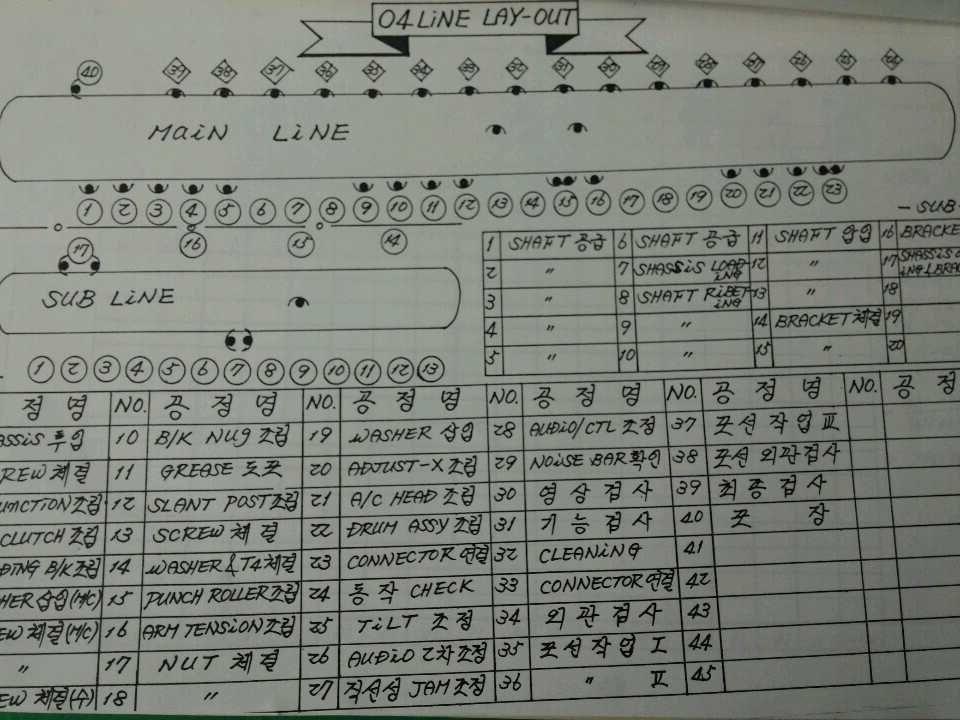 04 LiNE LAY-OUT
40 39 38 37 36 35 34 33 32 31 30 29 28 27 26 25 24
MaiN LiNE
1 2 3 4 5 6 7 8 9 10 11 12 13 14 15 16 17 18 19 20 21 22 23
17 16 15 14
- SUB-
SUB LiNE
1 SHAFT 공급 6 SHAFT 공급 11 SHAFT 압입 16 BRACKE
2 〃 7 SHASSiS LOADiNG 12 〃 17 SHASSiS
3 〃 8 SHAFT RiBETiNG 13 〃 18
4 〃 9 〃 14 BRACKET 체결 19
5 〃 10 〃 15 〃 20
1 2 3 4 5 6 7 8 9 10 11 12 13
정 명 NO. 공 정 명 NO. 공 정 명 NO. 공 정 명 NO. 공 정 명 NO. 공 정
ASSiS 투입 10 B/K NUG 조립 19 WASHER 삽입 28 AUDiO/CTL 조정 37 포선 작업 Ⅲ
REW 체결 11 GREASE 도포 20 ADJUST-X 조립 29 NOiSE BAR 확인 38 포선 외관검사
UNCTiON 조립 12 SLANT POST 조립 21 A/C HEAD 조립 30 영상검사 39 최종검사
CLUTCH 조립 13 SCREW 체결 22 DRUM ASSY 조립 31 기능검사 40 포 장
DiNG B/K 조립 14 WASHER & T4 체결 23 CONNECTOR 연결 32 CLEANiNG 41
HER 삽입(M/C) 15 PUNCH ROLLER 조립 24 동작 CHECK 33 CONNECTOR 연결 42
EW 체결(M/C) 16 ARM TENSiON 조립 25 TiLT 조정 34 외관검사 43
〃 17 NUT 체결 26 AUDiO 2차 조정 35 포선 작업 Ⅰ 44
EW 체결(수) 18 〃 27 직선성 JAM 조정 36 〃 Ⅱ 45